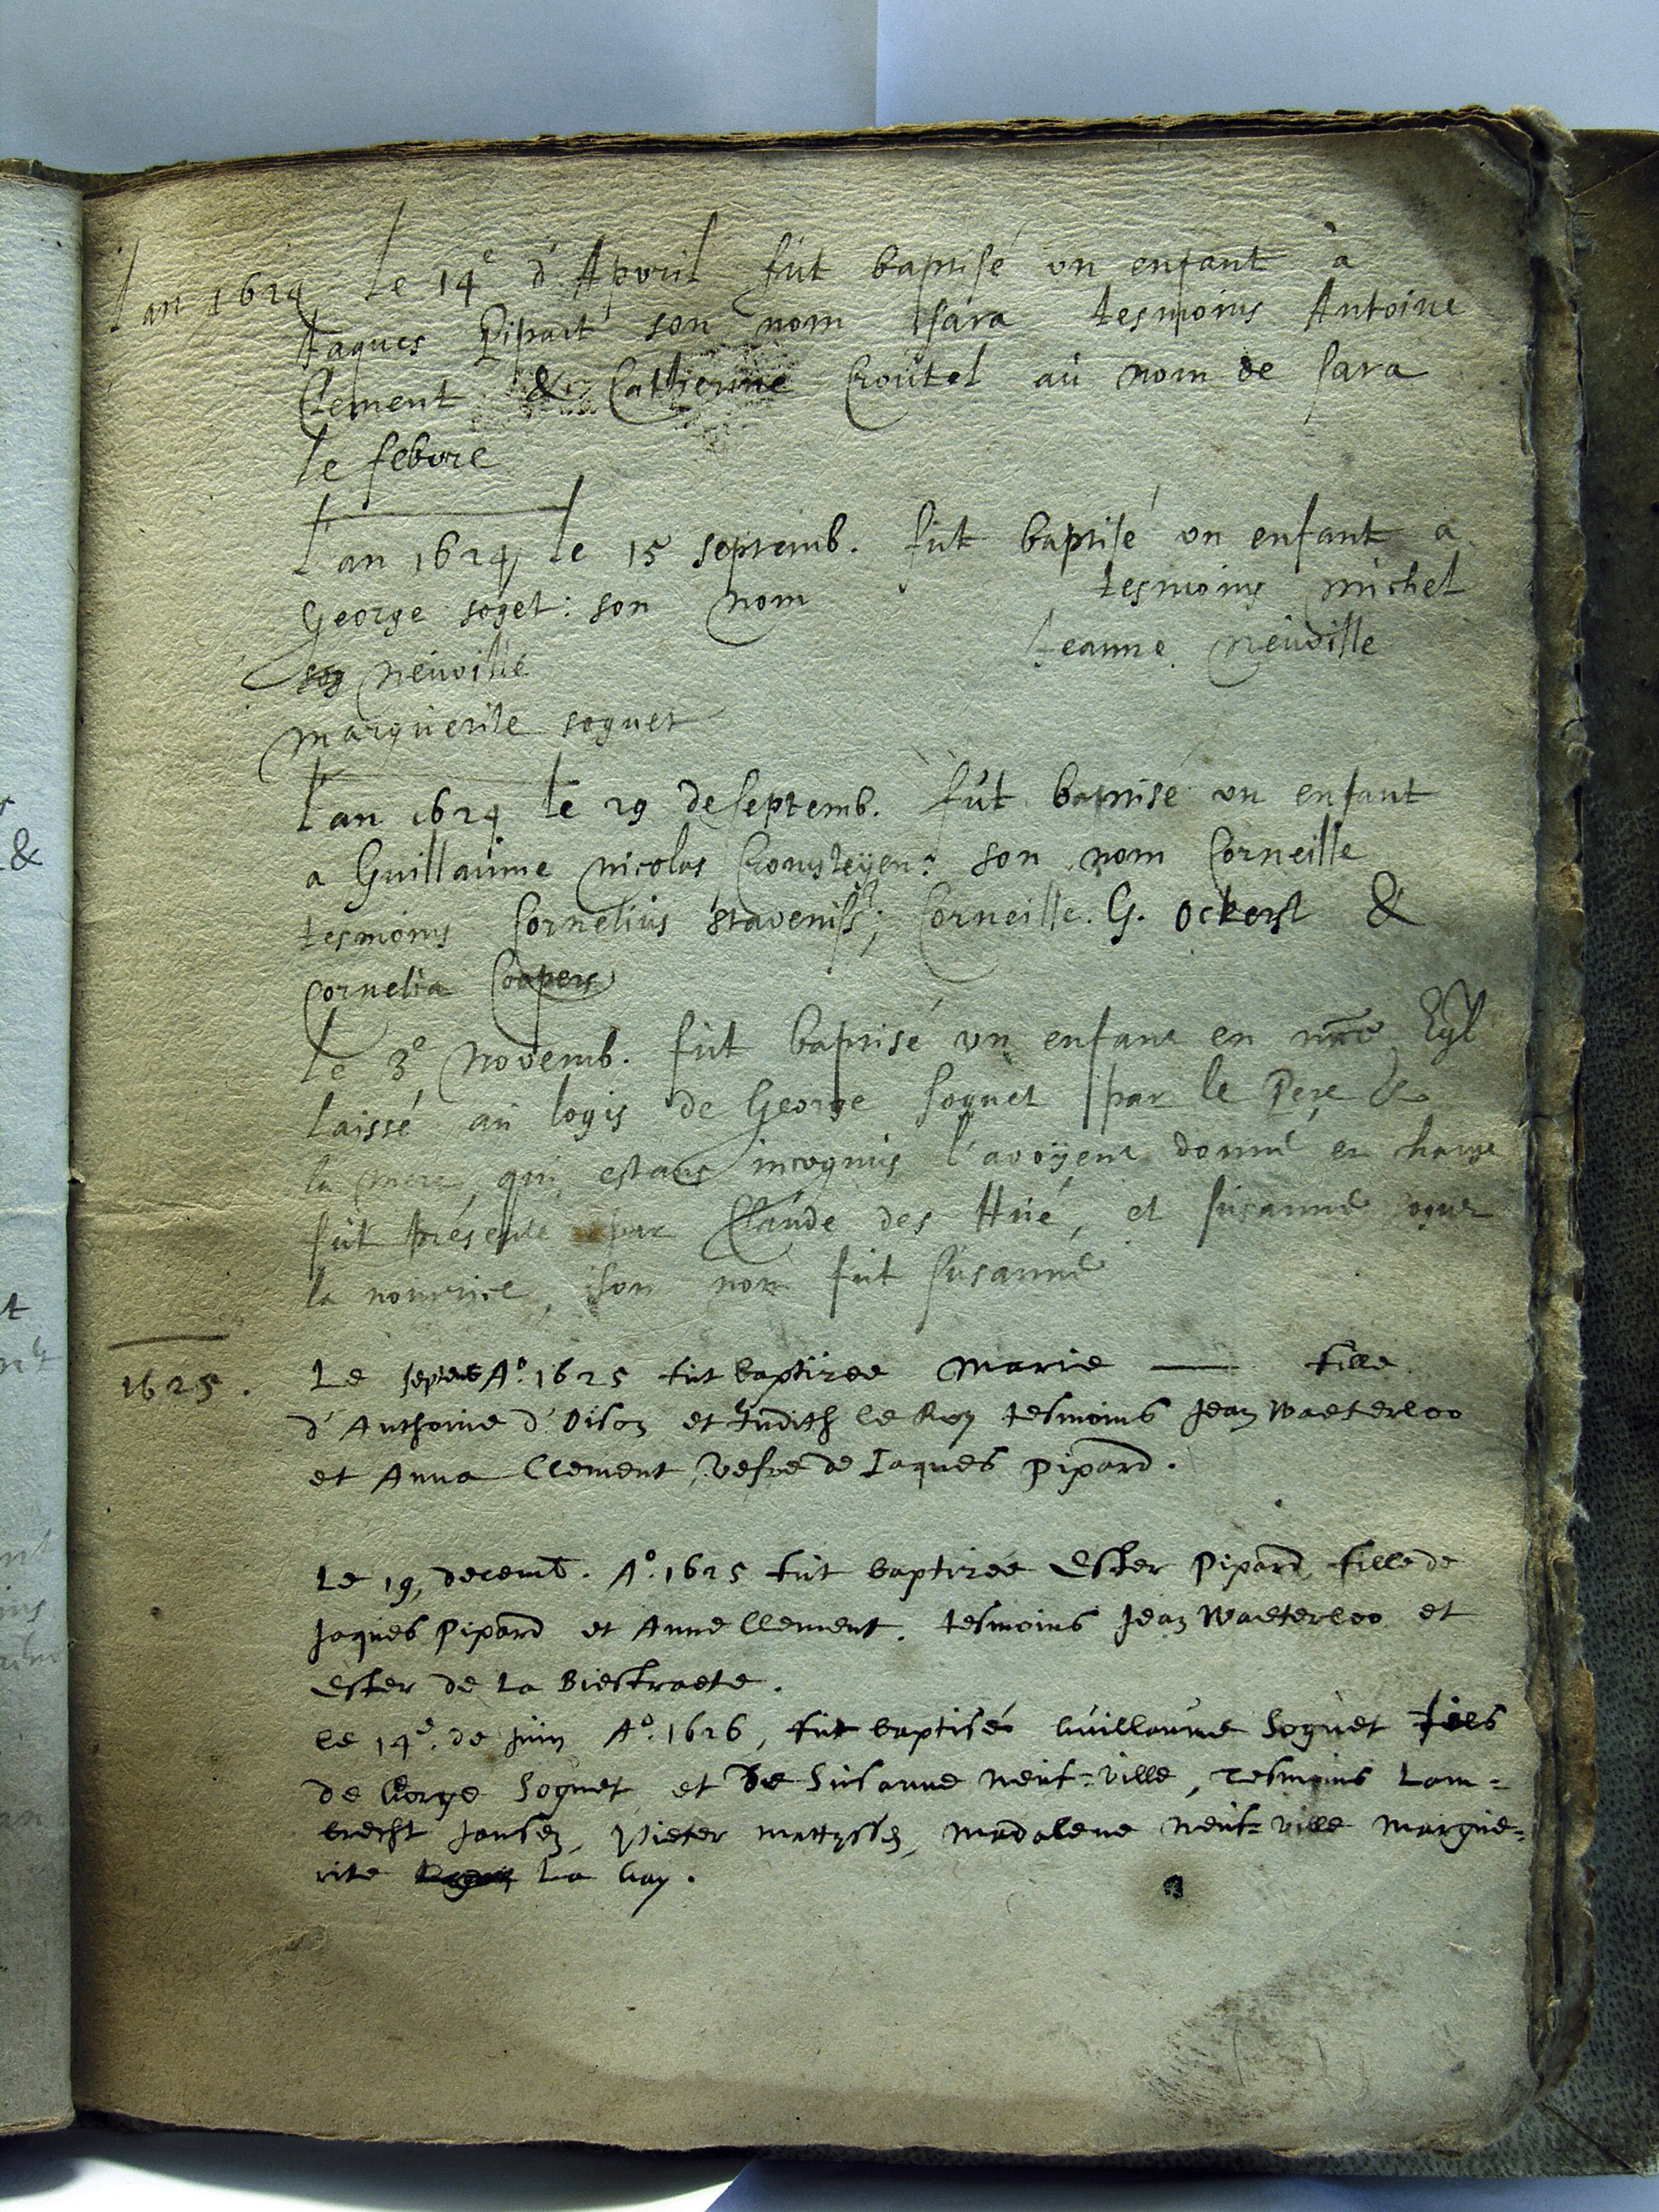 L'an 1624 Le 14e d'Apvril fut baptisé vn enfant à
Jaques Pipart son nom Sara tesmoins Antoine
Clement & Catherine Croütel aü nom de Sara
le febvre
L'an 1624 Le 15 septemb. fut baptisé vn enfant a
George soget: son nom tesmoins Michel
Neuville Jeanne Neuville
Marguerite soguet
L'an 1624 le 29 de septemb. fut baptisé vn enfant
a Guillaume Nicolas son nom Corneille
tesmoins Cornelius Staveniss; Corneille. G. Ockerst &
Cornelia Coopers
Le 3e Novemb. fut baptisé vn enfant en nre Egl
laissé au logis de George Soguet par le Pere &
la mere, qui estans incognus l'avoÿent donné en charge
fut présenté par Claude des Hué, et Susanne soguet
la nourrice, son nom fut Susanne
1625. Le Ao. 1625 fut baptizee Marie — fille
d'Anthoine d'Oison et Judith le Roy tesmoins Jean Waeterloo
et Anna Clement, vefve de Jaques Pipard.
Le 19, decemb. Ao. 1625 fut baptizée Ester Pipard fille de
Jaques Pipard et Anne Clement. tesmoins Jean Waeterloo et
Ester de la Biestraete.
le 14e. de Juin Ao. 1626, fut baptisé Guillaume Soguet fils
de George Soguet et de Susanne Neuf=ville, tesmoins Lam=
brecht Jansen, Pieter Mattyssen, Madalene Neuf=ville Margue=
rite la